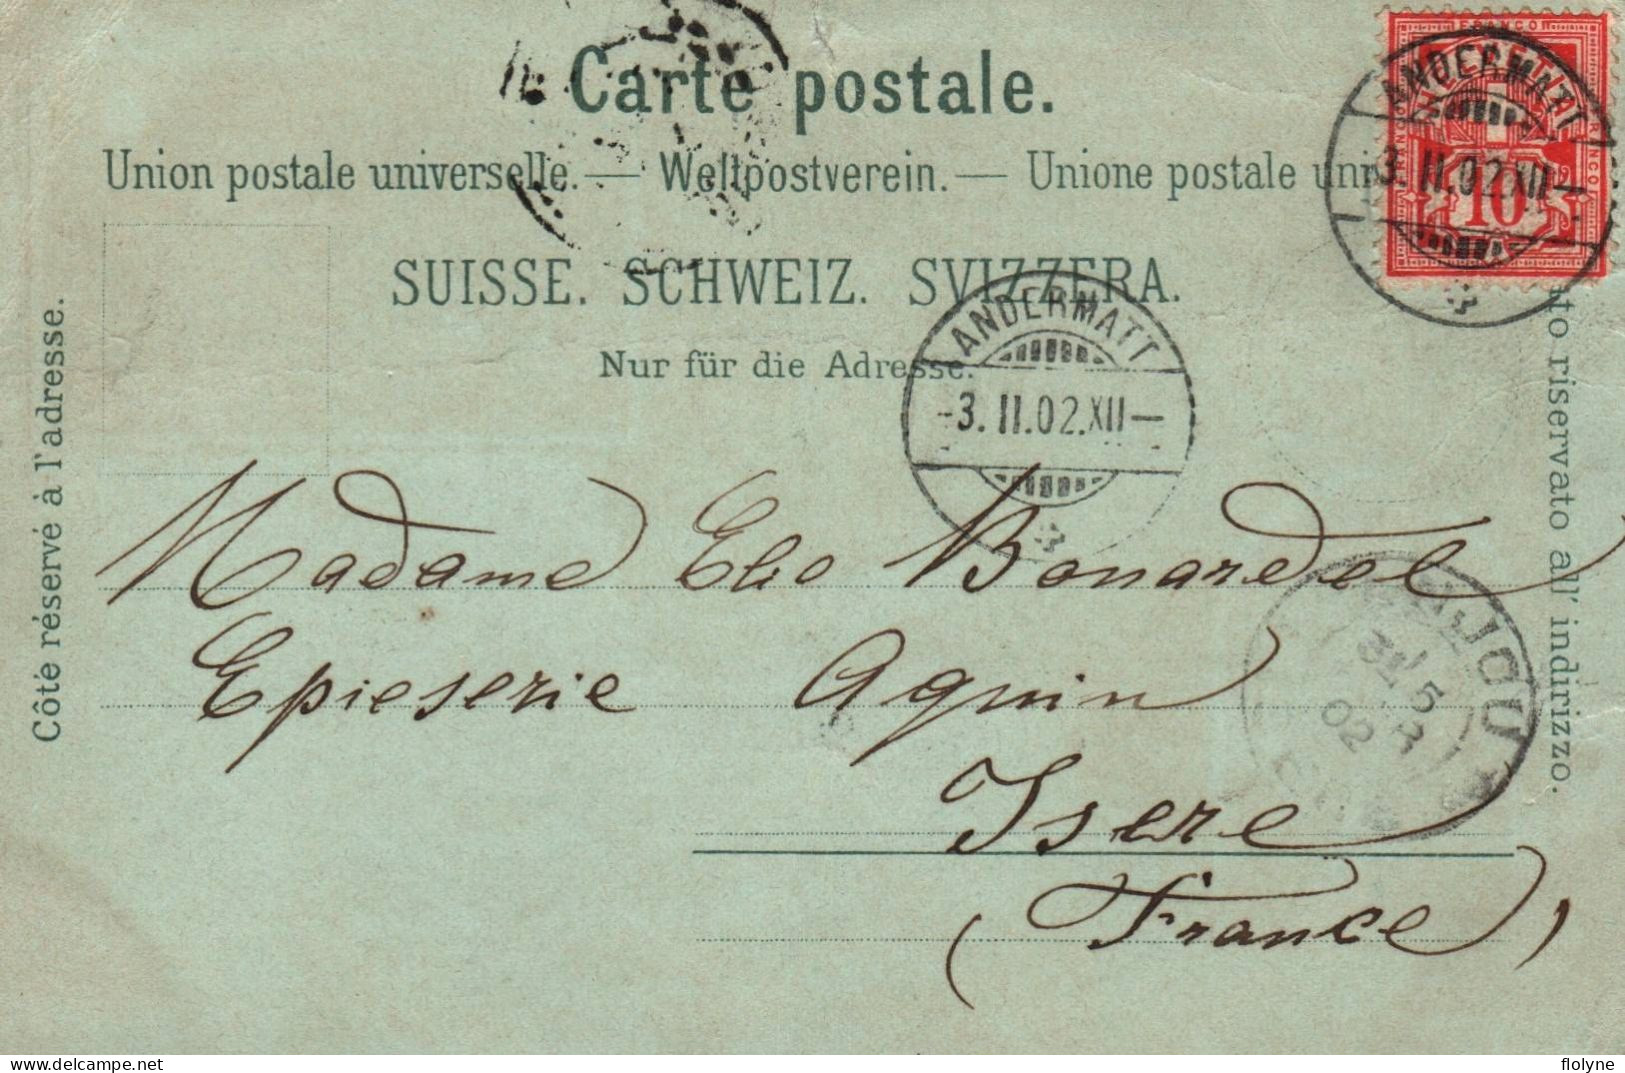 Carte postale.
Union postale universelle. — Weltpostverein. — Unione postale uni
SUISSE. SCHWEIZ. SVIZZERA.
Nur für die Adresse.
Côté réservé à l'adresse.
riservato all' indirizzo.
FRANCO
10
ANDERMATT
-3.II.02.XII—
ANDERMATT
-3.II.02.XII—
Madame Elio Bonardel
Epieserie Aguin
Isere
(France)
5
02
flolyne